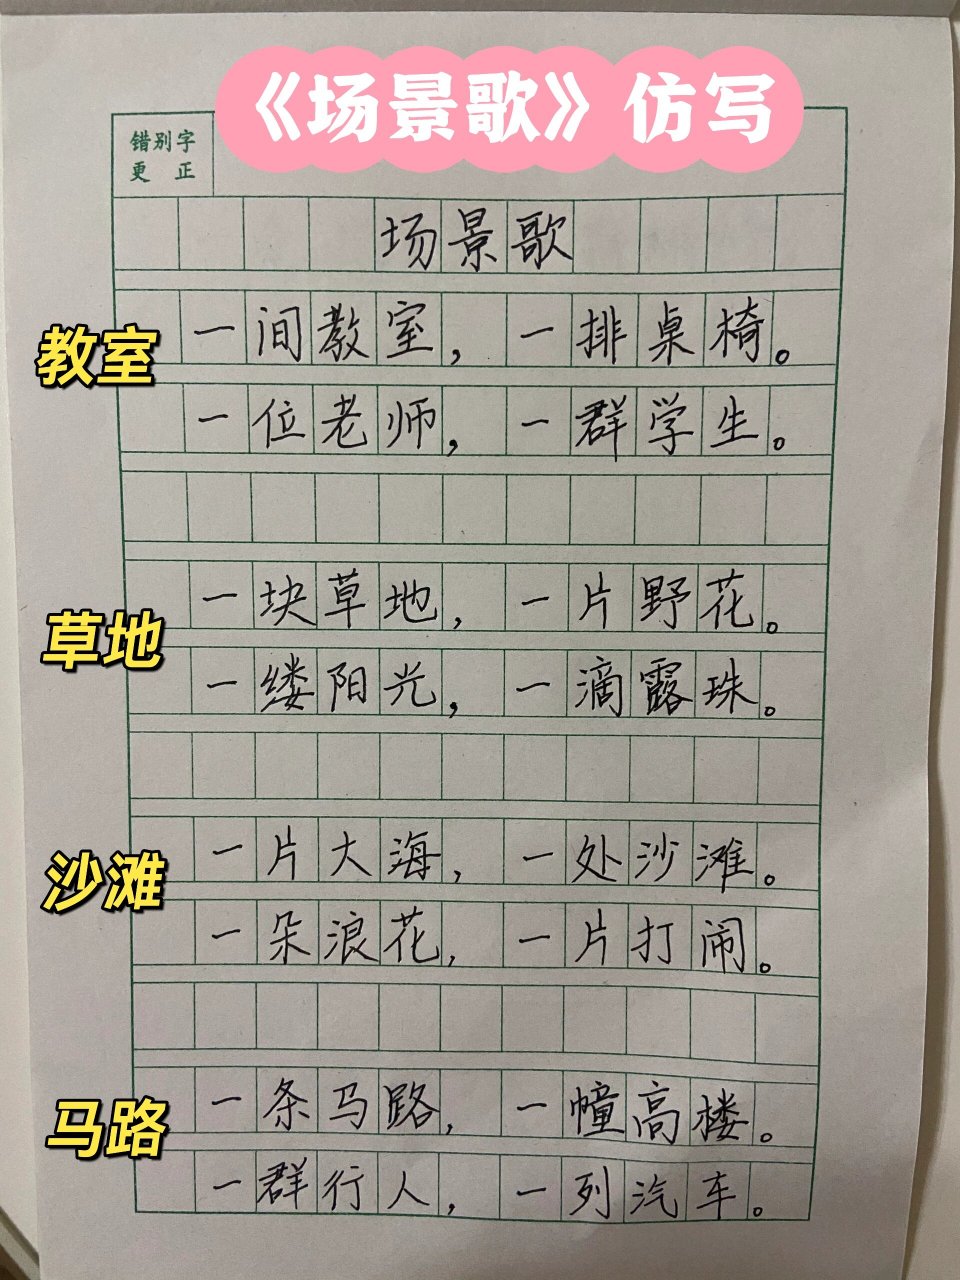 《场景歌》仿写
错别字
更 正
场景歌
教室
一间教室，一排桌椅。
一位老师，一群学生。
草地
一块草地，一片野花。
一缕阳光，一滴露珠。
沙滩
一片大海，一处沙滩。
一朵浪花，一片打闹。
马路
一条马路，一幢高楼。
一群行人，一列汽车。